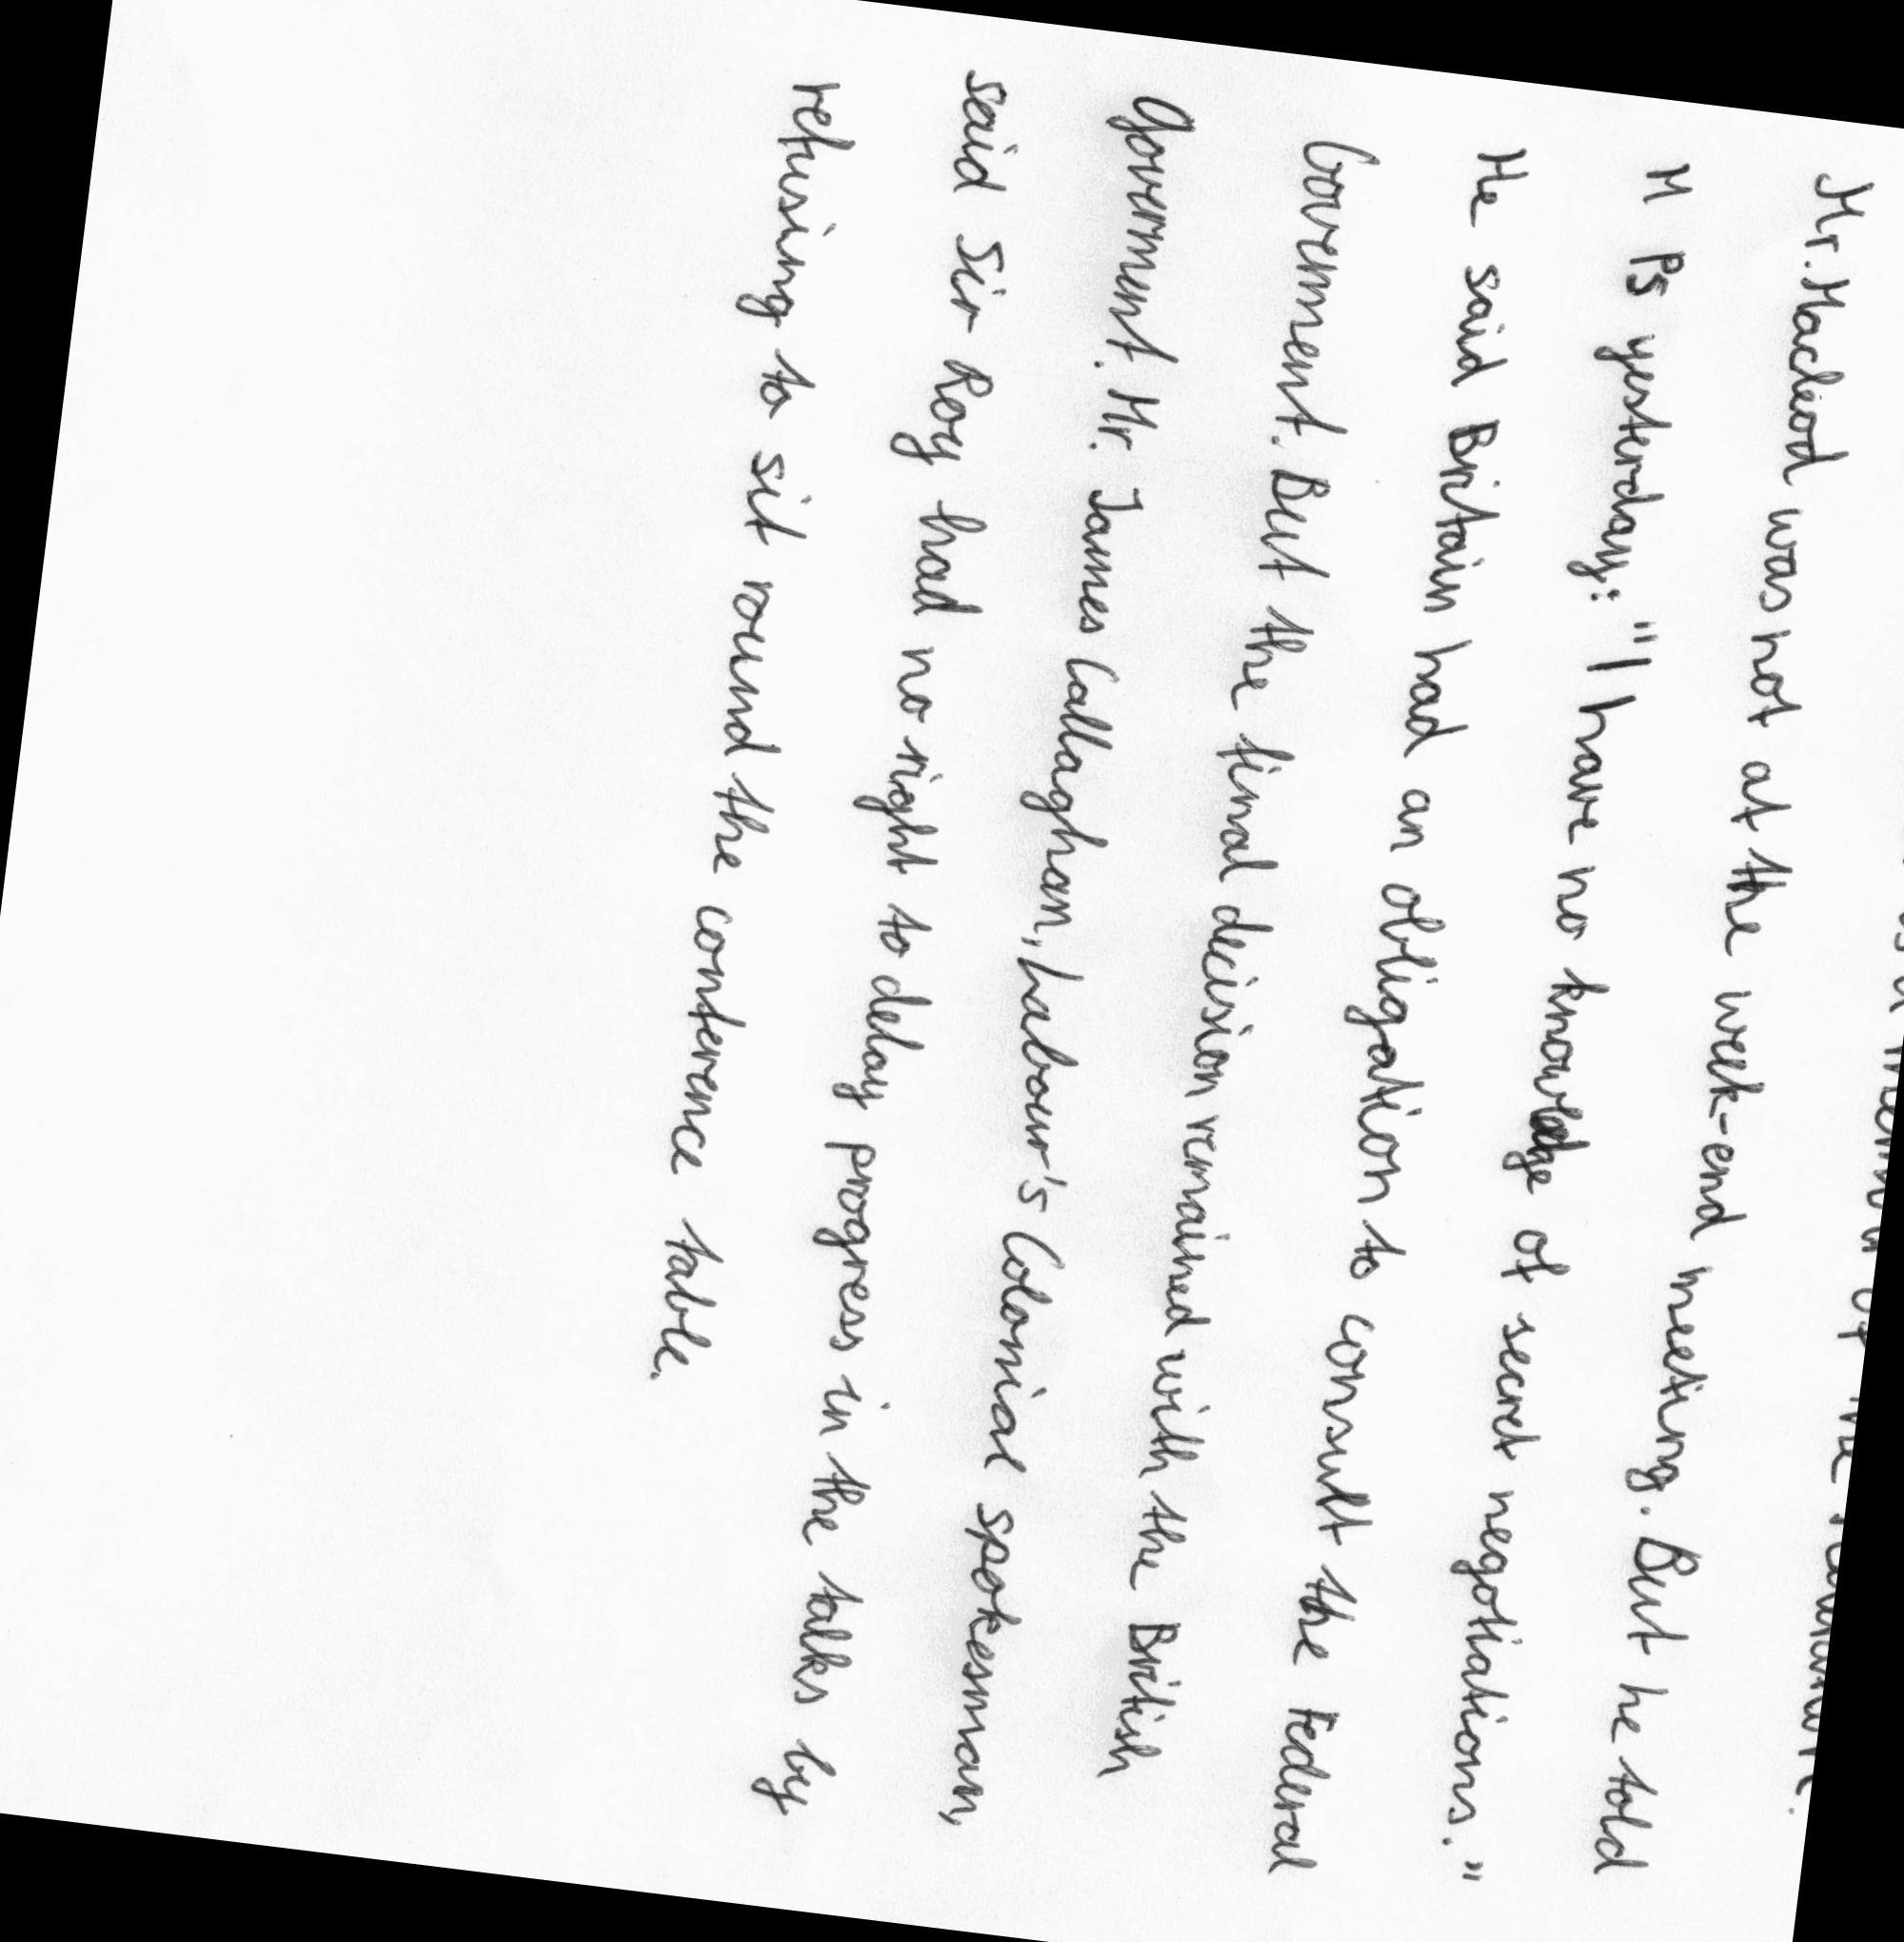 Mr. Macleod was not at the week-end meeting. But he told
M Ps yesterday: "I have no knowledge of secret negotiations."
He said Britain had an obligation to consult the Federal
Government. But the final decision remained with the British
Government. Mr. James Callaghan, Labour's Colonial spokesman,
said Sir Roy had no right to delay progress in the talks by
refusing to sit round the conference table.